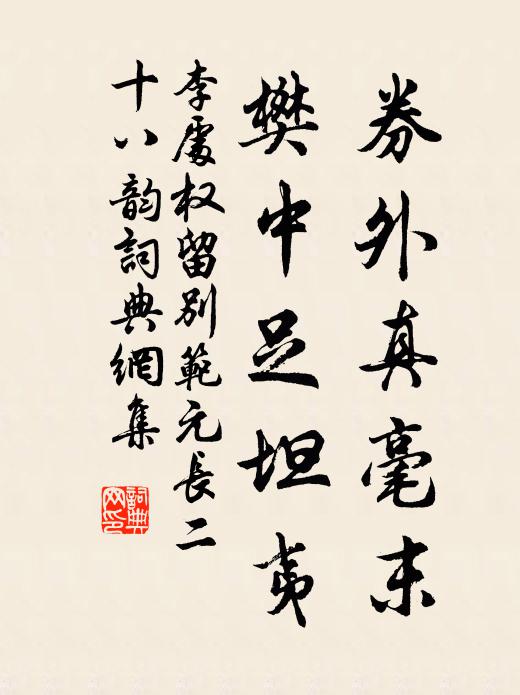 券外真毫末
樊中足坦夷
李處权留別範元長二
十八韵詞典網集
詞典网印